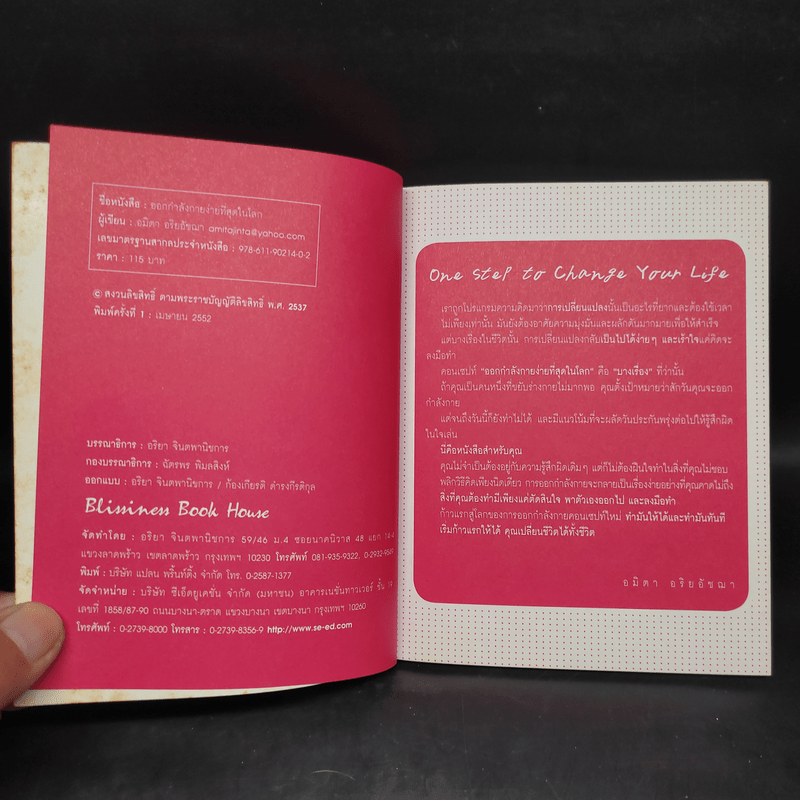 ชื่อหนังสือ : ออกกำลังกายง่ายที่สุดในโลก
ผู้เขียน : อมิตา อริยอัชฌา amitajinta@yahoo.com
เลขมาตรฐานสากลประจำหนังสือ : 978-611-90214-0-2
ราคา : 115 บาท
© สงวนลิขสิทธิ์ ตามพระราชบัญญัติลิขสิทธิ์ พ.ศ. 2537
พิมพ์ครั้งที่ 1 : เมษายน 2552
บรรณาธิการ : อริยา จินตพานิชการ
กองบรรณาธิการ : ฉัตรพร พิมลสิงห์
ออกแบบ : อริยา จินตพานิชการ / ก้องเกียรติ ดำรงกีรติกุล
Blissiness Book House
จัดทำโดย : อริยา จินตพานิชการ 59/46 ม.4 ซอยนาคนิวาส 48 แยก 14-4
แขวงลาดพร้าว เขตลาดพร้าว กรุงเทพฯ 10230 โทรศัพท์ 081-935-9322, 0-2932-9649
พิมพ์ : บริษัท แปลน พริ้นท์ติ้ง จำกัด โทร. 0-2587-1377
จัดจำหน่าย : บริษัท ซีเอ็ดยูเคชั่น จำกัด (มหาชน) อาคารเนชั่นทาวเวอร์ ชั้น 19
เลขที่ 1858/87-90 ถนนบางนา-ตราด แขวงบางนา เขตบางนา กรุงเทพฯ 10260
โทรศัพท์ : 0-2739-8000 โทรสาร : 0-2739-8356-9 http://www.se-ed.com
One Step to Change Your Life
เราถูกโปรแกรมความคิดมาว่าการเปลี่ยนแปลงนั้นเป็นอะไรที่ยากและต้องใช้เวลา
ไม่เพียงเท่านั้น มันยังต้องอาศัยความมุ่งมั่นและผลักดันมากมายเพื่อให้สำเร็จ
แต่บางเรื่องในชีวิตนั้น การเปลี่ยนแปลงกลับเป็นไปได้ง่ายๆ และเร้าใจแค่คิดจะ
ลงมือทำ
คอนเซปท์ "ออกกำลังกายง่ายที่สุดในโลก" คือ "บางเรื่อง" ที่ว่านั้น
ถ้าคุณเป็นคนหนึ่งที่ขยับร่างกายไม่มากพอ คุณตั้งเป้าหมายว่าสักวันคุณจะออก
กำลังกาย
แต่จนถึงวันนี้ก็ยังทำไม่ได้ และมีแนวโน้มที่จะผลัดวันประกันพรุ่งต่อไปให้รู้สึกผิด
ในใจเล่น
นี่คือหนังสือสำหรับคุณ
คุณไม่จำเป็นต้องอยู่กับความรู้สึกผิดเดิมๆ แต่ก็ไม่ต้องฝืนใจทำในสิ่งที่คุณไม่ชอบ
พลิกวิธีคิดเพียงนิดเดียว การออกกำลังกายจะกลายเป็นเรื่องง่ายอย่างที่คุณคาดไม่ถึง
สิ่งที่คุณต้องทำมีเพียงแค่ตัดสินใจ พาตัวเองออกไป และลงมือทำ
ก้าวแรกสู่โลกของการออกกำลังกายคอนเซปท์ใหม่ ทำมันให้ได้และทำมันทันที
เริ่มก้าวแรกให้ได้ คุณเปลี่ยนชีวิตได้ทั้งชีวิต
อมิตา อริยอัชฌา